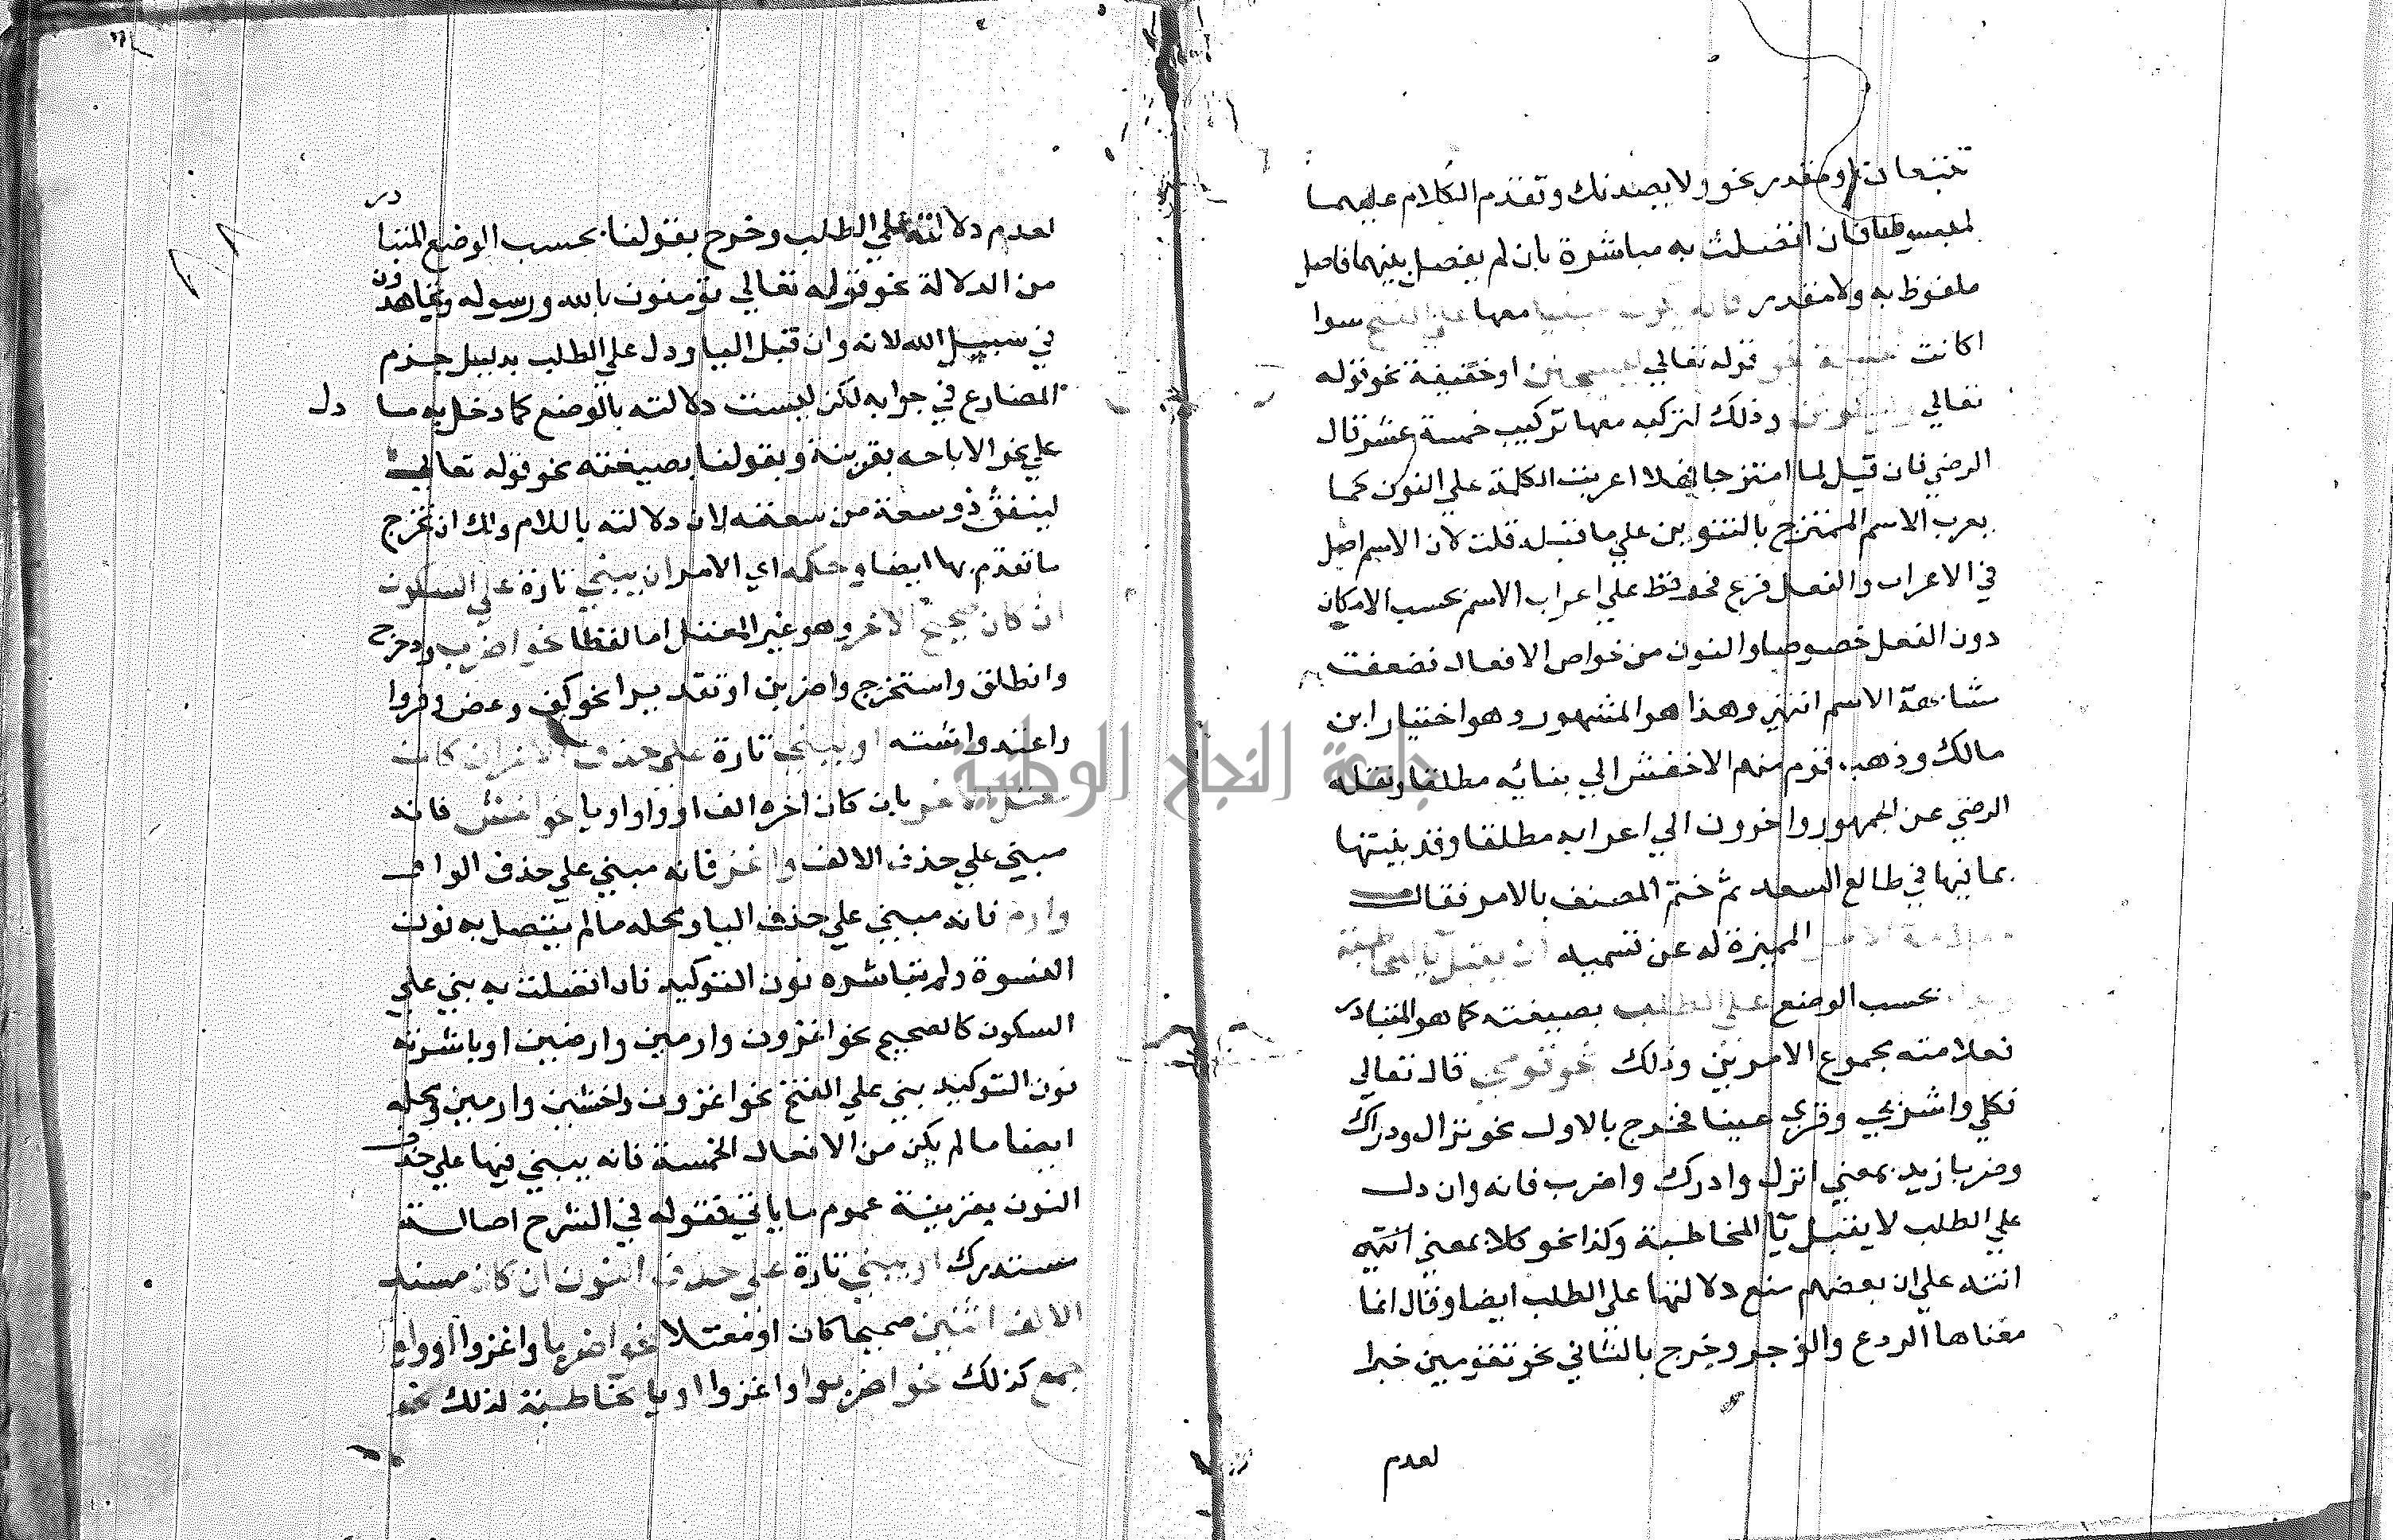 تتبعان او مقدر نحو ولا يصدنك وتقدم الكلام عليهما
فان اتصلت به مباشرة بان لم يفصل بينهما فاصل
ملفوظ به ولا مقدر فانه يكون مبنيا معها علي الفتح سوا
اكانت نحو قوله تعالي ليسجنن او خفيفة نحو قوله
تعالي وذلك لتركبه معها تركيب خمسة عشر قال
الرضي فان قيل لما امتزجا فهلا اعربت الكلمة علي النون كما
يعرب الاسم الممتزج بالتنوين علي ما قبله قلت لان الاسم اصل
في الاعراب والفعل فرع فحوفظ علي اعراب الاسم بحسب الامكان
دون الفعل خصوصا والنون من خواص الافعال فضعفت
الاسم انتهي وهذا هو المشهور وهو اختيار ابن
مالك وذهب قوم منهم الاخفش الي بنائه مطلقا ونقله
الرضي عن الجمهور واخرون الي اعرابه مطلقا وقد بينتها
بما فيها في طالع السعد ثم ختم المصنف بالامر فقال
المميزة له عن قسميه ان يقبل يا المخاطبة
بحسب الوضع علي الطلب بصيغته كما هو المتبادر
فعلامته مجموع الامرين وذلك نحو قومي قال تعالي
فكلي واشربي وقري عينا فخرج بالاول نحو نزال ودراك
وضربا زيد بمعني انزل وادرك واضرب فانه وان دل
علي الطلب لا يقبل يا المخاطبة وكذا نحو كلا بمعني انتبه
انته علي ان بعضهم منع دلالتها علي الطلب ايضا وقال انما
معناها الردع والزجر وخرج بالثاني نحو تقومين خبرا
لعدم
لعدم دلالته علي الطلب وخرج بقولنا بحسب الوضع المتبادر
من الدلالة نحو قوله تعالي تؤمنون بالله ورسوله وتجاهدون
في سبيل الله لانه وان قبل اليا ودل علي الطلب بدليل جزم
المضارع في جوابه لكن ليست دلالته بالوضع كما دخل به ما دل
علي نحو الاباحه بقرينة وبقولنا بصيغته نحو قوله تعالي
لينفق ذو سعة من سعته لان دلالته باللام ولك ان تخرج
ما تقدم بها ايضا وحكمه اي الامر ان يبني تارة علي السكون
ان كان صحيح الاخر وهو غير المعتل اما لفظا نحو اضرب ودحرج
وانطلق واستخرج واضربن او تقديرا نحو كف وعض وفروا
تارة علي حذف الاخر ان كان
معتل الاخر بان كان اخره الف او واو او يا نحو اخش فانه
مبني علي حذف الالف واغز فانه مبني علي حذف الواو
وارم فانه مبني علي حذف اليا ومحله ما لم يتصل به نون
النسوة ولم تباشره نون التوكيد فان اتصلت به بني علي
السكون كالصحيح نحو اغزون وارمين وارضين او باشرته
نون التوكيد بني علي الفتح نحو اغزون واخشين وارمين ومحله
ايضا ما لم يكن من الافعال الخمسة فانه يبني فيها علي حذف
النون بقرينة عموم ما ياتي فقوله في الشرح اصالة
مستدرك او يبني تارة علي حذف النون ان كان مسند
الالف اثنين صحيحا كان او معتلا نحو اضربا واغزوا او واو
جمع كذلك نحو اضربوا واغزوا او يا مخاطبة لذلك نحو
جامعة النجاح الوطنية